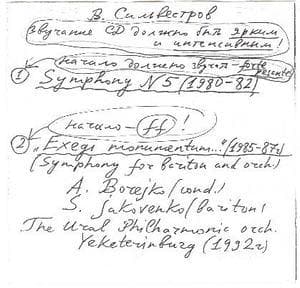 В. Сильвестров
Звучание CD должно быть ярким
и интенсивным!
начало должно звучать forte
① Symphony N5 (1980-82)
начало - ff!
② "Exegi monumentum..." (1985-87г)
(Symphony for bariton and orch.)
A. Borejko (cond.)
S. jakovenko (bariton)
The Ural Philharmonic orch.
Yeketerinburg (1992г)